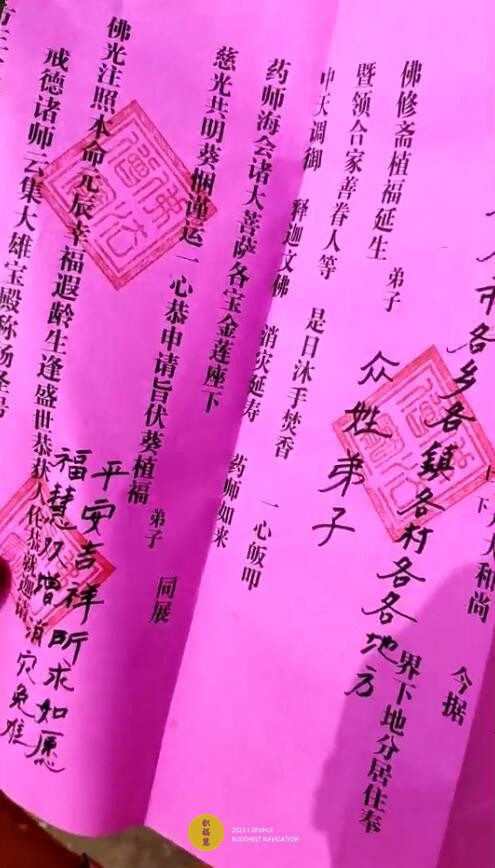 大和尚 今据
市各乡各鎮各村各各地方 界下地分居住奉
佛修斋植福延生 弟子 众姓弟子
暨领合家善眷人等 是日沐手焚香 一心皈叩
中天调御 释迦文佛 消灾延寿 药师如来
药师海会诸大菩萨各宝金莲座下
慈光共明葵悃谨运一心恭申请旨伏葵植福 弟子 同展
佛光注照本命元辰幸福遐龄生逢盛世恭获人伦恭就迦请
平安吉祥所求如愿
福慧双增消灾免难
戒德诸师云集大雄宝殿称扬圣号
积福慧
2023 I JIFUHUI
BUDDHIST NAVIGATION